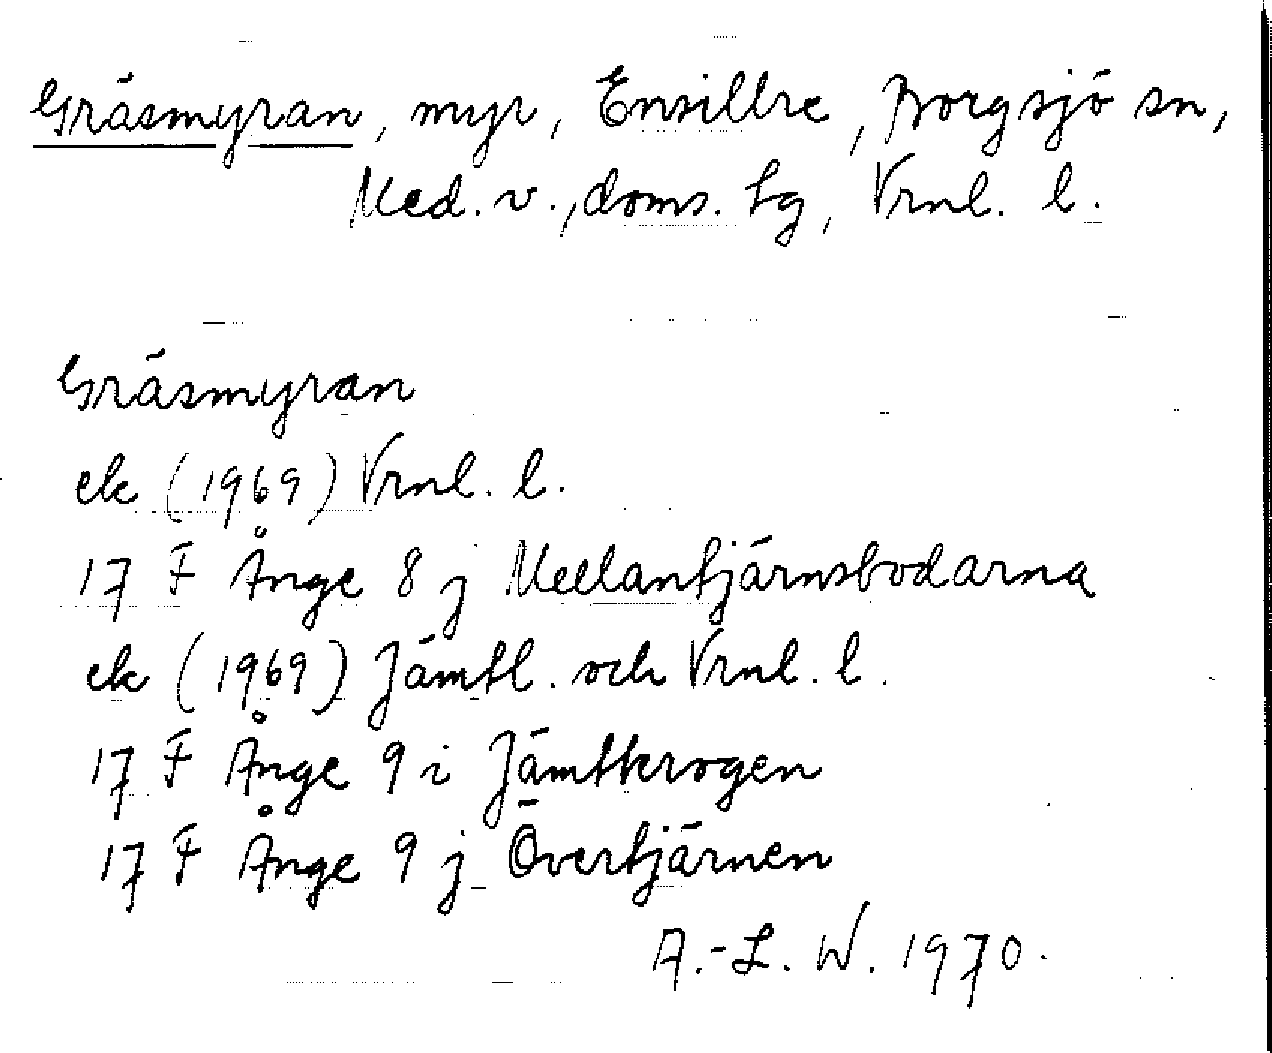 Gräsmyran, myr, Ensillre, Borgsjö sn,
Med. v., doms. tg, Vrnl. l.
Gräsmyran
ek (1969) Vrnl. l.
17 F Ånge 8 j Mellantjärnsbodarna
ek (1969) Jämtl. och Vrnl. l.
17 F Ånge 9 i Jämtkrogen
17 F Ånge 9 j Övertjärnen
A.-L. W. 1970.